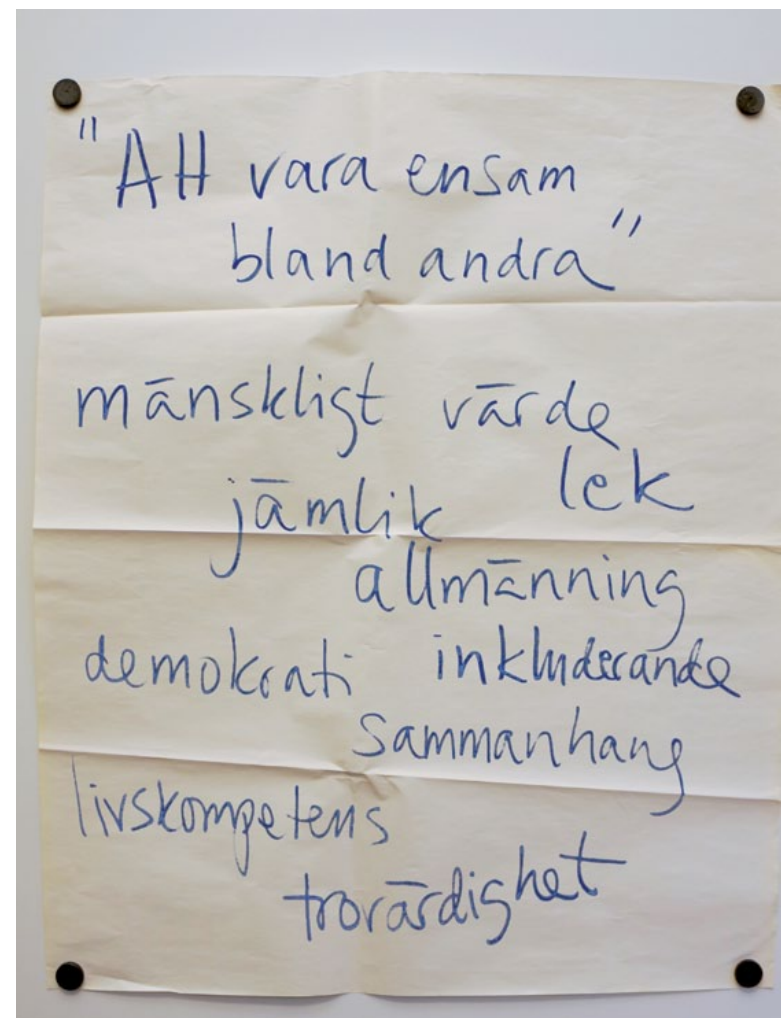 "Att vara ensam
bland andra"
mänskligt värde
lek
jämlik
allmänning
demokrati inkluderande
sammanhang
livskompetens
trovärdighet